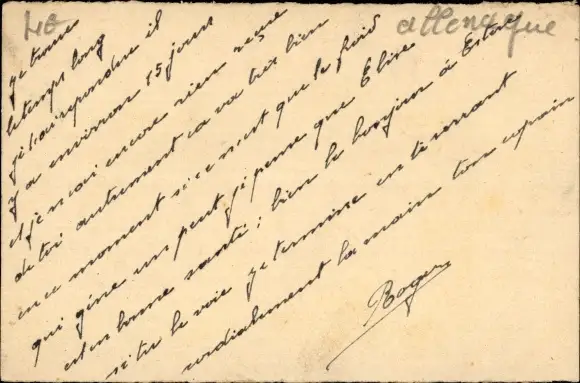 40
allemagne
je trouve
le temps long
je t'ai repondue il
y a environ 15 jours
et je n'ai encore rien reçue
de toi autrement ca va très bien
en ce moment si ce n'est que le froid
qui gène un peut, je pense que Elise
est en bonne santé ; bien le bonjour à Ester
si tu le voie je termine en te serrant
cordialement la main ton copain
Roger